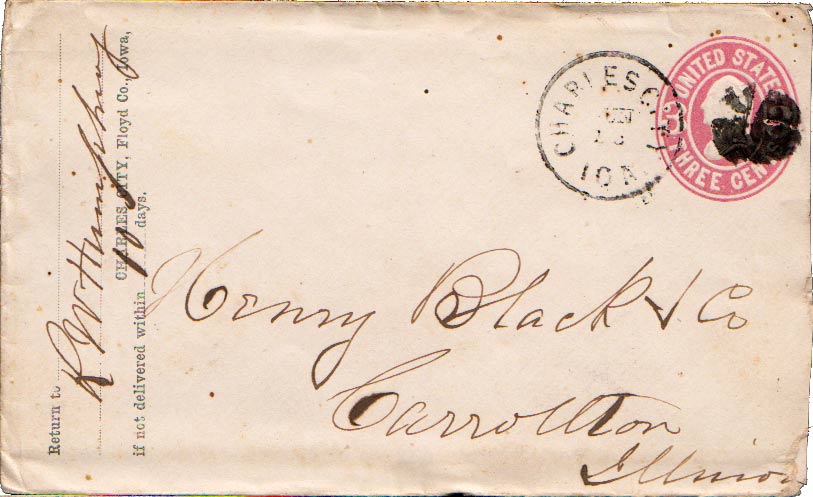 Return to
R W Humphrey
CHARLES CITY, Floyd Co., Iowa,
if not delivered within 10 days.
CHARLES CITY
IOWA
UNITED STATES
THREE CENTS
Henry Black & Co
Carrollton
Illinois